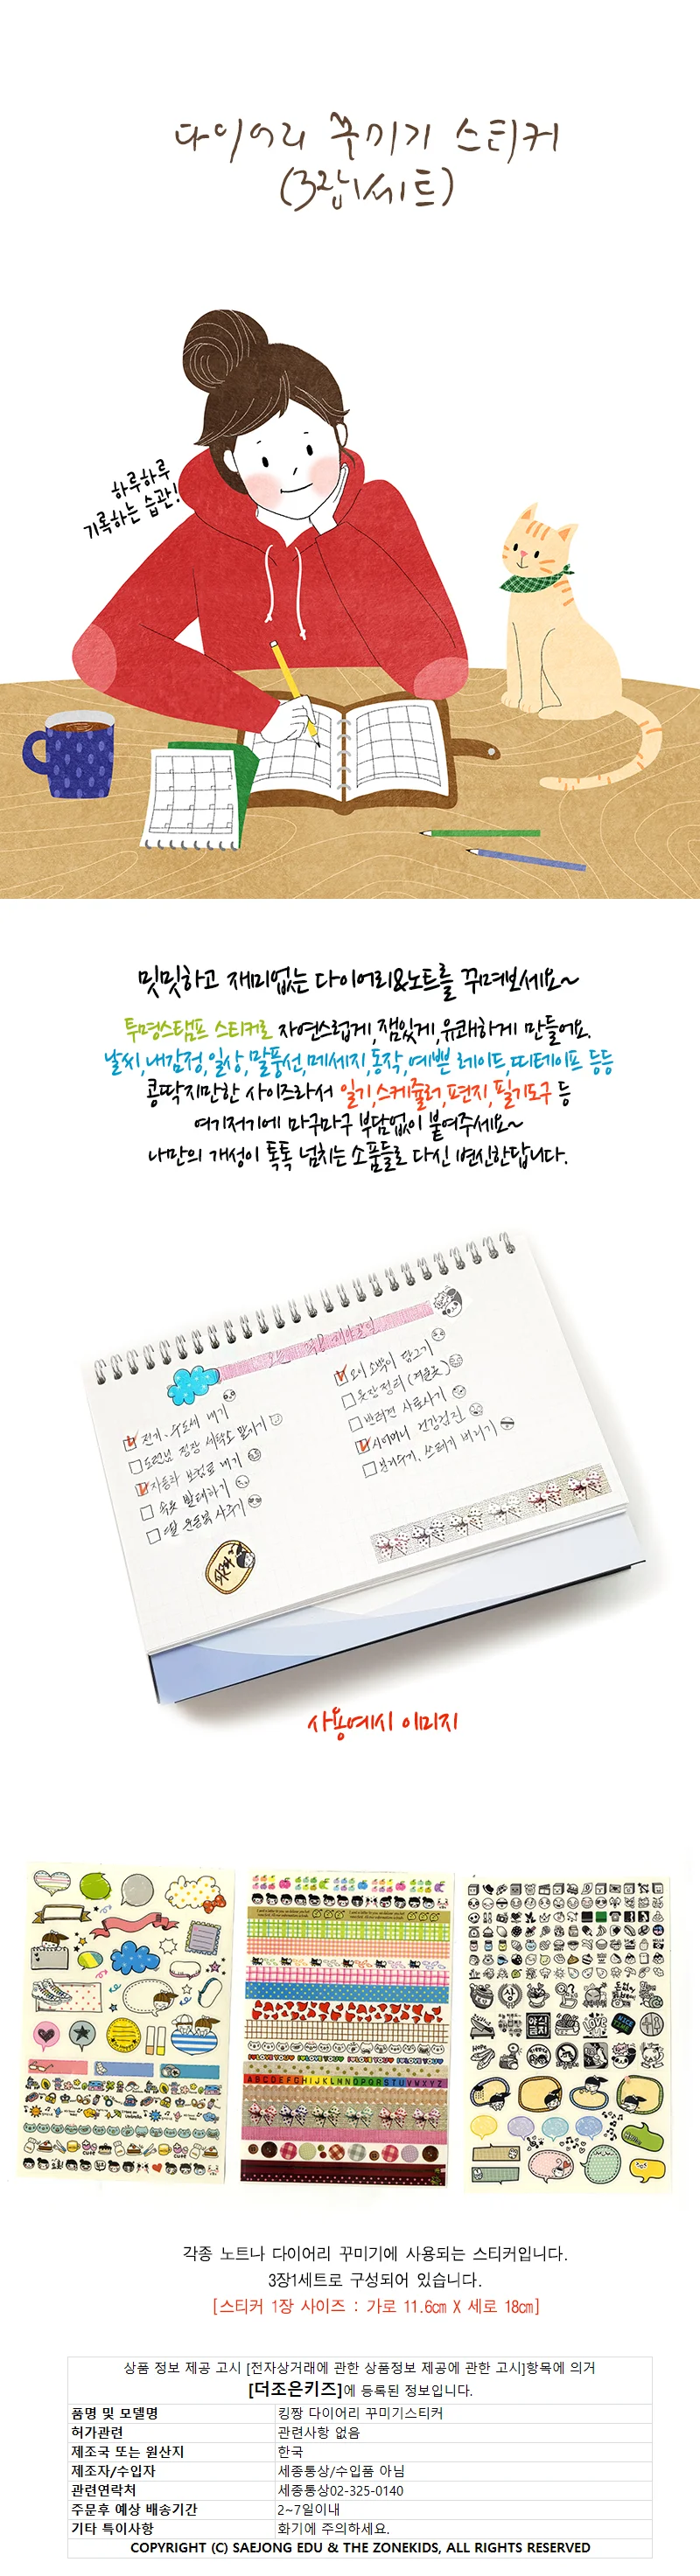 다이어리 꾸미기 스티커
(3장1세트)
하루하루
기록하는 습관!
밋밋하고 재미없는 다이어리&노트를 꾸며보세요~
투명스탬프 스티커로 자연스럽게,잼있게,유쾌하게 만들어요.
날씨,내감정,일상,말풍선,메세지,동작,예쁜 레이트,띠테이프 등등
콩딱지만한 사이즈라서 일기,스케쥴러,편지,필기도구 등
여기저기에 마구마구 부담없이 붙여주세요~
나만의 개성이 톡톡 넘치는 소품들로 다신 변신한답니다.
전기, 수도세 내기
도련님 정장 세탁소 맡기기
자동차 보험료 내기
속옷 빨래하기
오이 소박이 담그기
옷장정리 (여름옷)
반려견 사료사기
시어머니 건강검진
분리수거, 쓰레기 버리기
사용예시 이미지
I LOVE YOU
ABCDEFGHIJKLMNOPQRSTUVWXYZ
각종 노트나 다이어리 꾸미기에 사용되는 스티커입니다.
3장1세트로 구성되어 있습니다.
[스티커 1장 사이즈 : 가로 11.6㎝ X 세로 18㎝]
상품 정보 제공 고시 [전자상거래에 관한 상품정보 제공에 관한 고시]항목에 의거
[더조은키즈]에 등록된 정보입니다.
품명 및 모델명 킹짱 다이어리 꾸미기스티커
허가관련 관련사항 없음
제조국 또는 원산지 한국
제조자/수입자 세종통상/수입품 아님
관련연락처 세종통상02-325-0140
주문후 예상 배송기간 2~7일이내
기타 특이사항 화기에 주의하세요.
COPYRIGHT (C) SAEJONG EDU & THE ZONEKIDS, ALL RIGHTS RESERVED